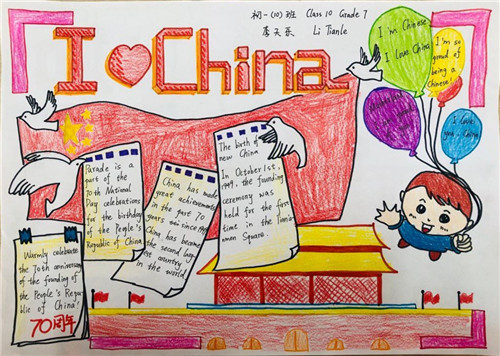 初一(10)班 Class 10 Grade 7
Li Tianle
I China
I'm Chinese
I love China
I'm so
proud of
being a
Chinese!
I love
you, China
The birth of
new China
In October 1st,
1949, the founding
ceremony was
held for the first
time in the Tianan
men Square.
Parade is a
part of the
70th National
Day celebrations
for the birthday
of the People's
Republic of China.
China has made
great achievements
in the past 70
years since 1949.
China has become
the second large
the country
in the world.
Warmly celebrate
the 70th anniversary
of the founding of
the People's Repu
blic of China!
70周年